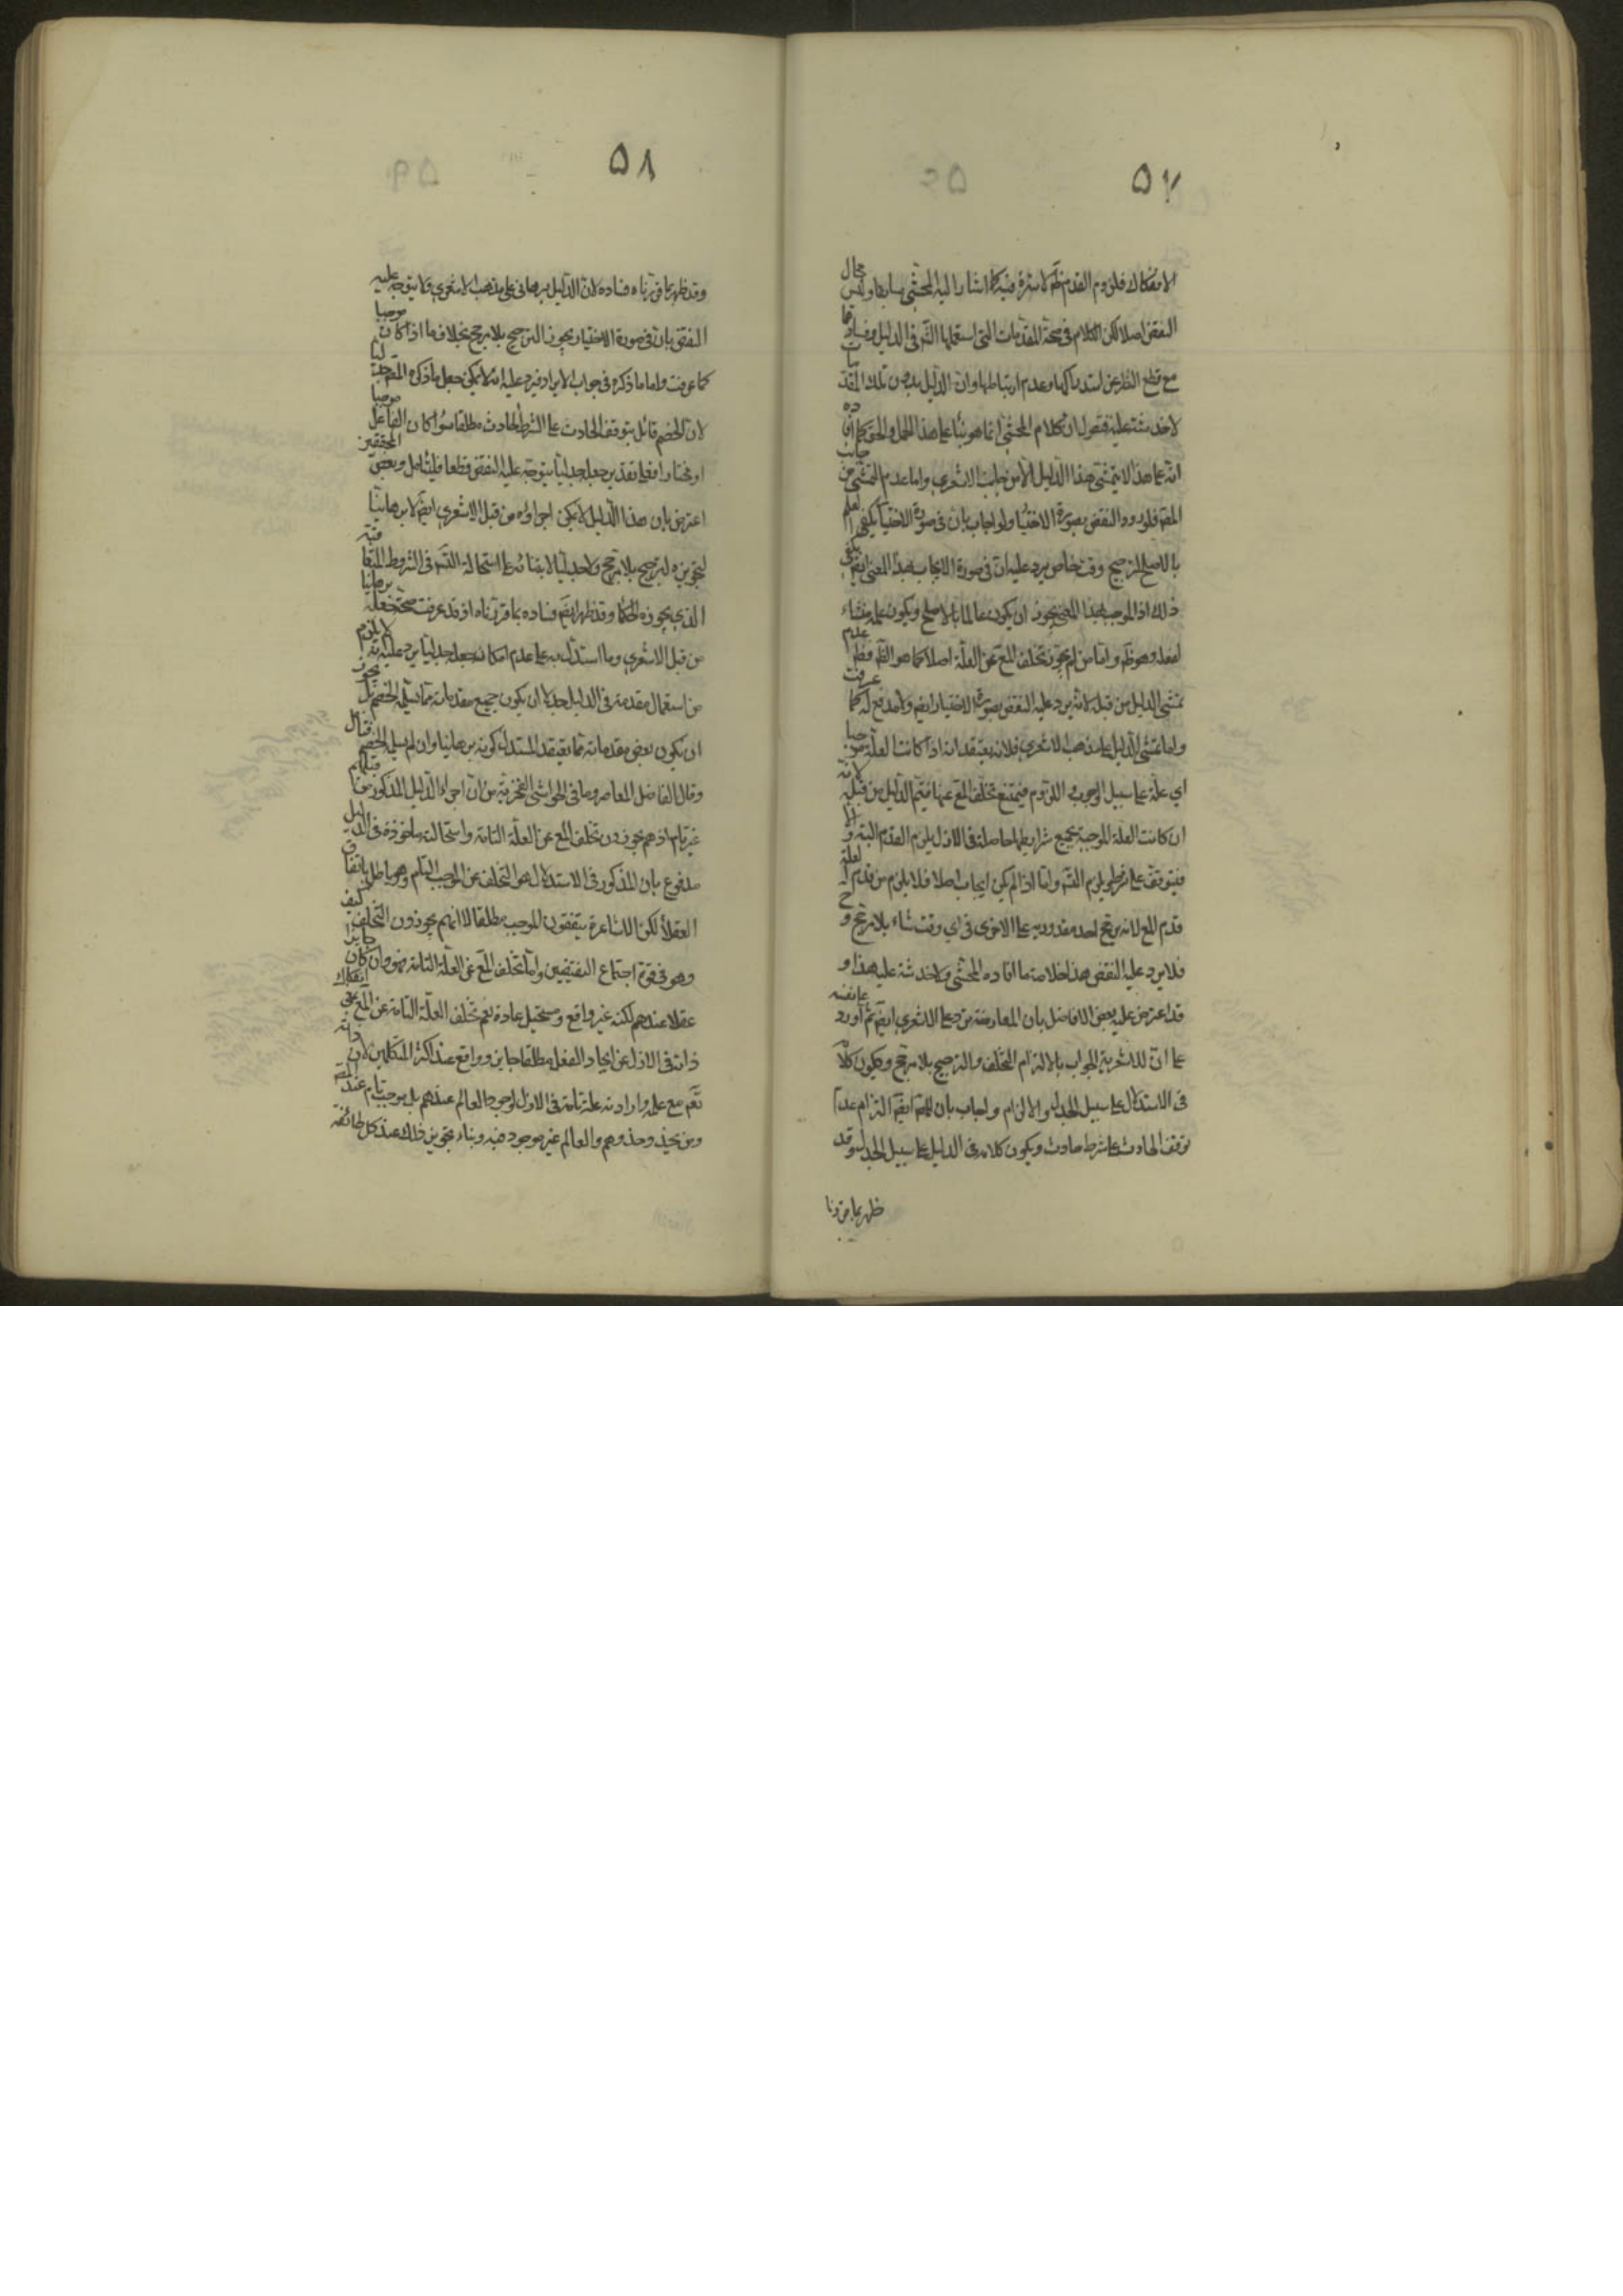 ٥٧
الانفكاك فلزوم القدم ظ لا سترة فيه كما اشار اليه المحشي سابقا وليس مجال
النقض اصلا لكن الكلام في صحة المقدمات التي استعملها الش في الدليل وفسادها
مع قطع النظر عن استدراكها وعدم ارتباطها وان الدليل بدون تلك المقدمات
لا خدشة عليه فنقول ان كلام المحشي انما هو بناء على هذا الحمل والحق كما افاده
انه على هذا لا يتمشى هذا الدليل الا من جانب الاشعري واما عدم التمشي من جانب
المص فلورود النقض بصورة الاختيار ولو اجاب بان في صورة الاختيار يكفي العلم
بالاصلح المرجح وقت خاص يرد عليه ان في صورة الايجاب بهذا المعنى ايض يكفي
ذلك اذ الموجب بهذا المعنى يجوز ان يكون عالما بالاصلح ويكون علمه منشاء
لفعله وهو ظ واما من لم يجوز تخلف المع عن العلة اصلا كما هو الظ فظ عدم
تمشي الدليل من قبله لانه يرد عليه النقض بصورة الاختيار ايض ولا مدفع له كما عرفت
واما تمشي الدليل على مذهب الاشعري فلانه يعتقد انه اذا كانت العلة موجبا
اي علة على سبيل الوجوب اللزوم فيمتنع تخلف المع عنها فيتم الدليل من قبله لانه
ان كانت العلة الموجبة بجميع شرايطها حاصلة في الازل يلزم القدم البتة والا
فيتوقف على شرط ويلزم الت واما اذا لم يكن ايجاب اصلا فلا يلزم من قدم العلة
قدم المع لانه يرجح احد مقدوريه على الاخرى في اي وقت شاء بلا مرجح و ح
فلا يرد عليه النقض هذا خلاصة ما افاده المحشي ولا خدشة عليه هذا و
قد اعترض عليه بعض الافاضل بان المعارضة ترد على الاشعري ايض ثم اورد على نفسه
على ان للاشعرية الجواب بالالتزام التخلف والترجيح بلا مرجح ويكون كلامه
في الاستدلال على سبيل الجدل والالزام واجاب بان للمص ايض التزام عدم
توقف الحادث على شرط حادث ويكون كلامه في الدليل على سبيل الجدل وقد
ظهر بما قررنا
٥٨
وقد ظهر بما قررناه فساده لان الدليل برهاني على مذهب الاشعري ولا يتوجه عليه
النقض بان في صورة الاختيار يجوز الترجيح بلا مرجح بخلاف ما اذا كان موجبا
كما عرفت واما ما ذكره في جواب الايراد فيرد عليه انه لا يمكن جعل ما ذكره المص جدليا
لان الخصم قائل بتوقف الحادث على الشرط الحادث مطلقا سواء كان الفاعل موجبا
او مختارا فعلى تقدير جعله جدليا يتوجه عليه النقض قطعا فليتامل وبعض المحققين
اعترض بان هذا الدليل لا يمكن اجراؤه من قبل الاشعري ايض لا برهانيا
لتجويزه الترجيح بلا مرجح ولا جدليا لابتنائه على استحالة الت في الشروط المتعاقبة
الذي يجوزه الحكما وقد ظهر ايض فساده بما قررناه اذ قد عرفت صحة جعله برهانيا
من قبل الاشعري وما استدل به على عدم امكان جعله جدليا يرد عليه انه لا يلزم
من استعمال مقدمة في الدليل جدلا ان يكون جميع مقدماته مما يسلمه الخصم بل يجوز
ان يكون بعض مقدماته مما يعتقد المستدل كونه برهانيا وان لم يسلم الخصم فتامل
وقال الفاضل المعاصر وما في الحواشي الفخرية من ان اجراء الدليل المذكور من قبلهم
غير تام اذ هم يجوزون تخلف المع عن العلة التامة واستحالته ماخوذة في الدليل
مدفوع بان المذكور في الاستدلال هو التخلف عن الموجب التام وهو باطل باتفاق
العقلا لكن الاشاعرة يتفقون الموجب مطلقا لا انهم يجوزون التخلف كيف
وهو في قوة اجتماع النقيضين واما تخلف المع عن العلة التامة فهو وان كان جايزا
عقلا عندهم لكنه غير واقع ومستحيل عادة نعم تخلف العلة التامة عن المع يعني انفكاك
ذاته في الازل عن ايجاد الفعل مطلقا جايز وواقع عند اكثر المتكلمين لان ذاته
تعم مع علمه وارادته علة تامة في الازل لوجود العالم عندهم بل موجب تام عند المص
ومن يحذو حذوهم والعالم غير موجود فيه وبناء تجويز ذلك عند كل طائفة